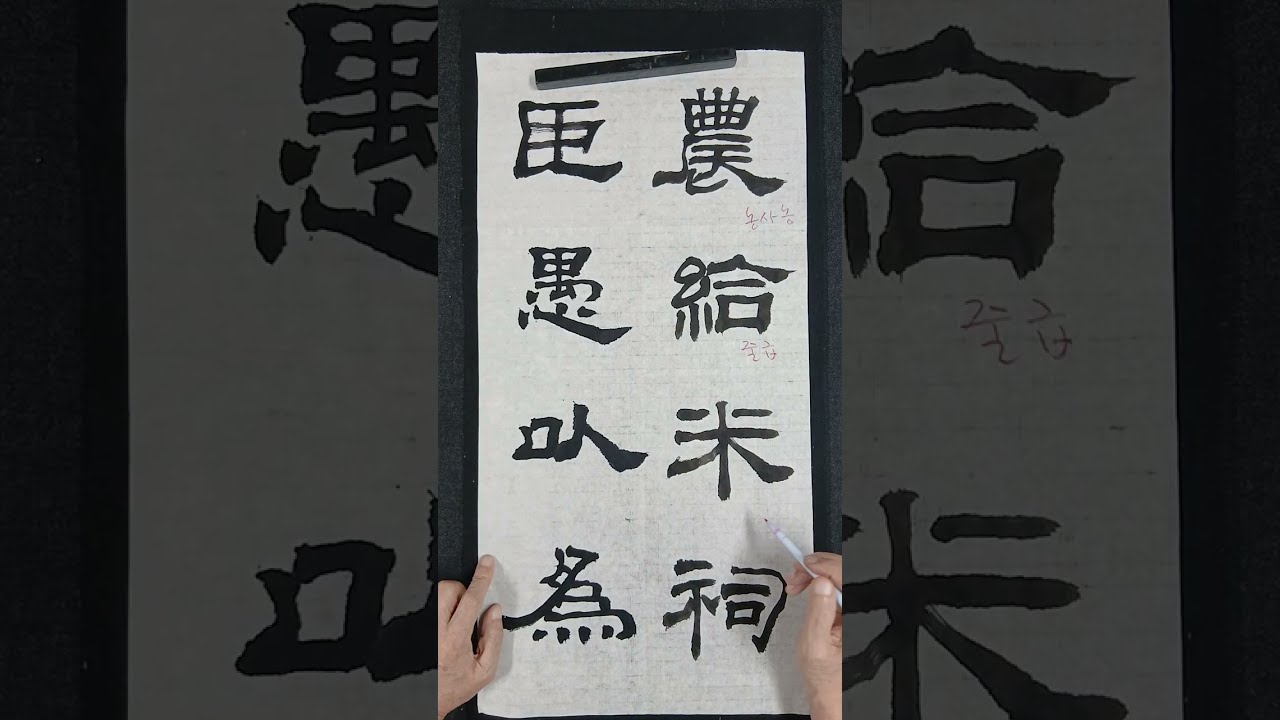 農給米祠
농사농
줄급
臣愚以為